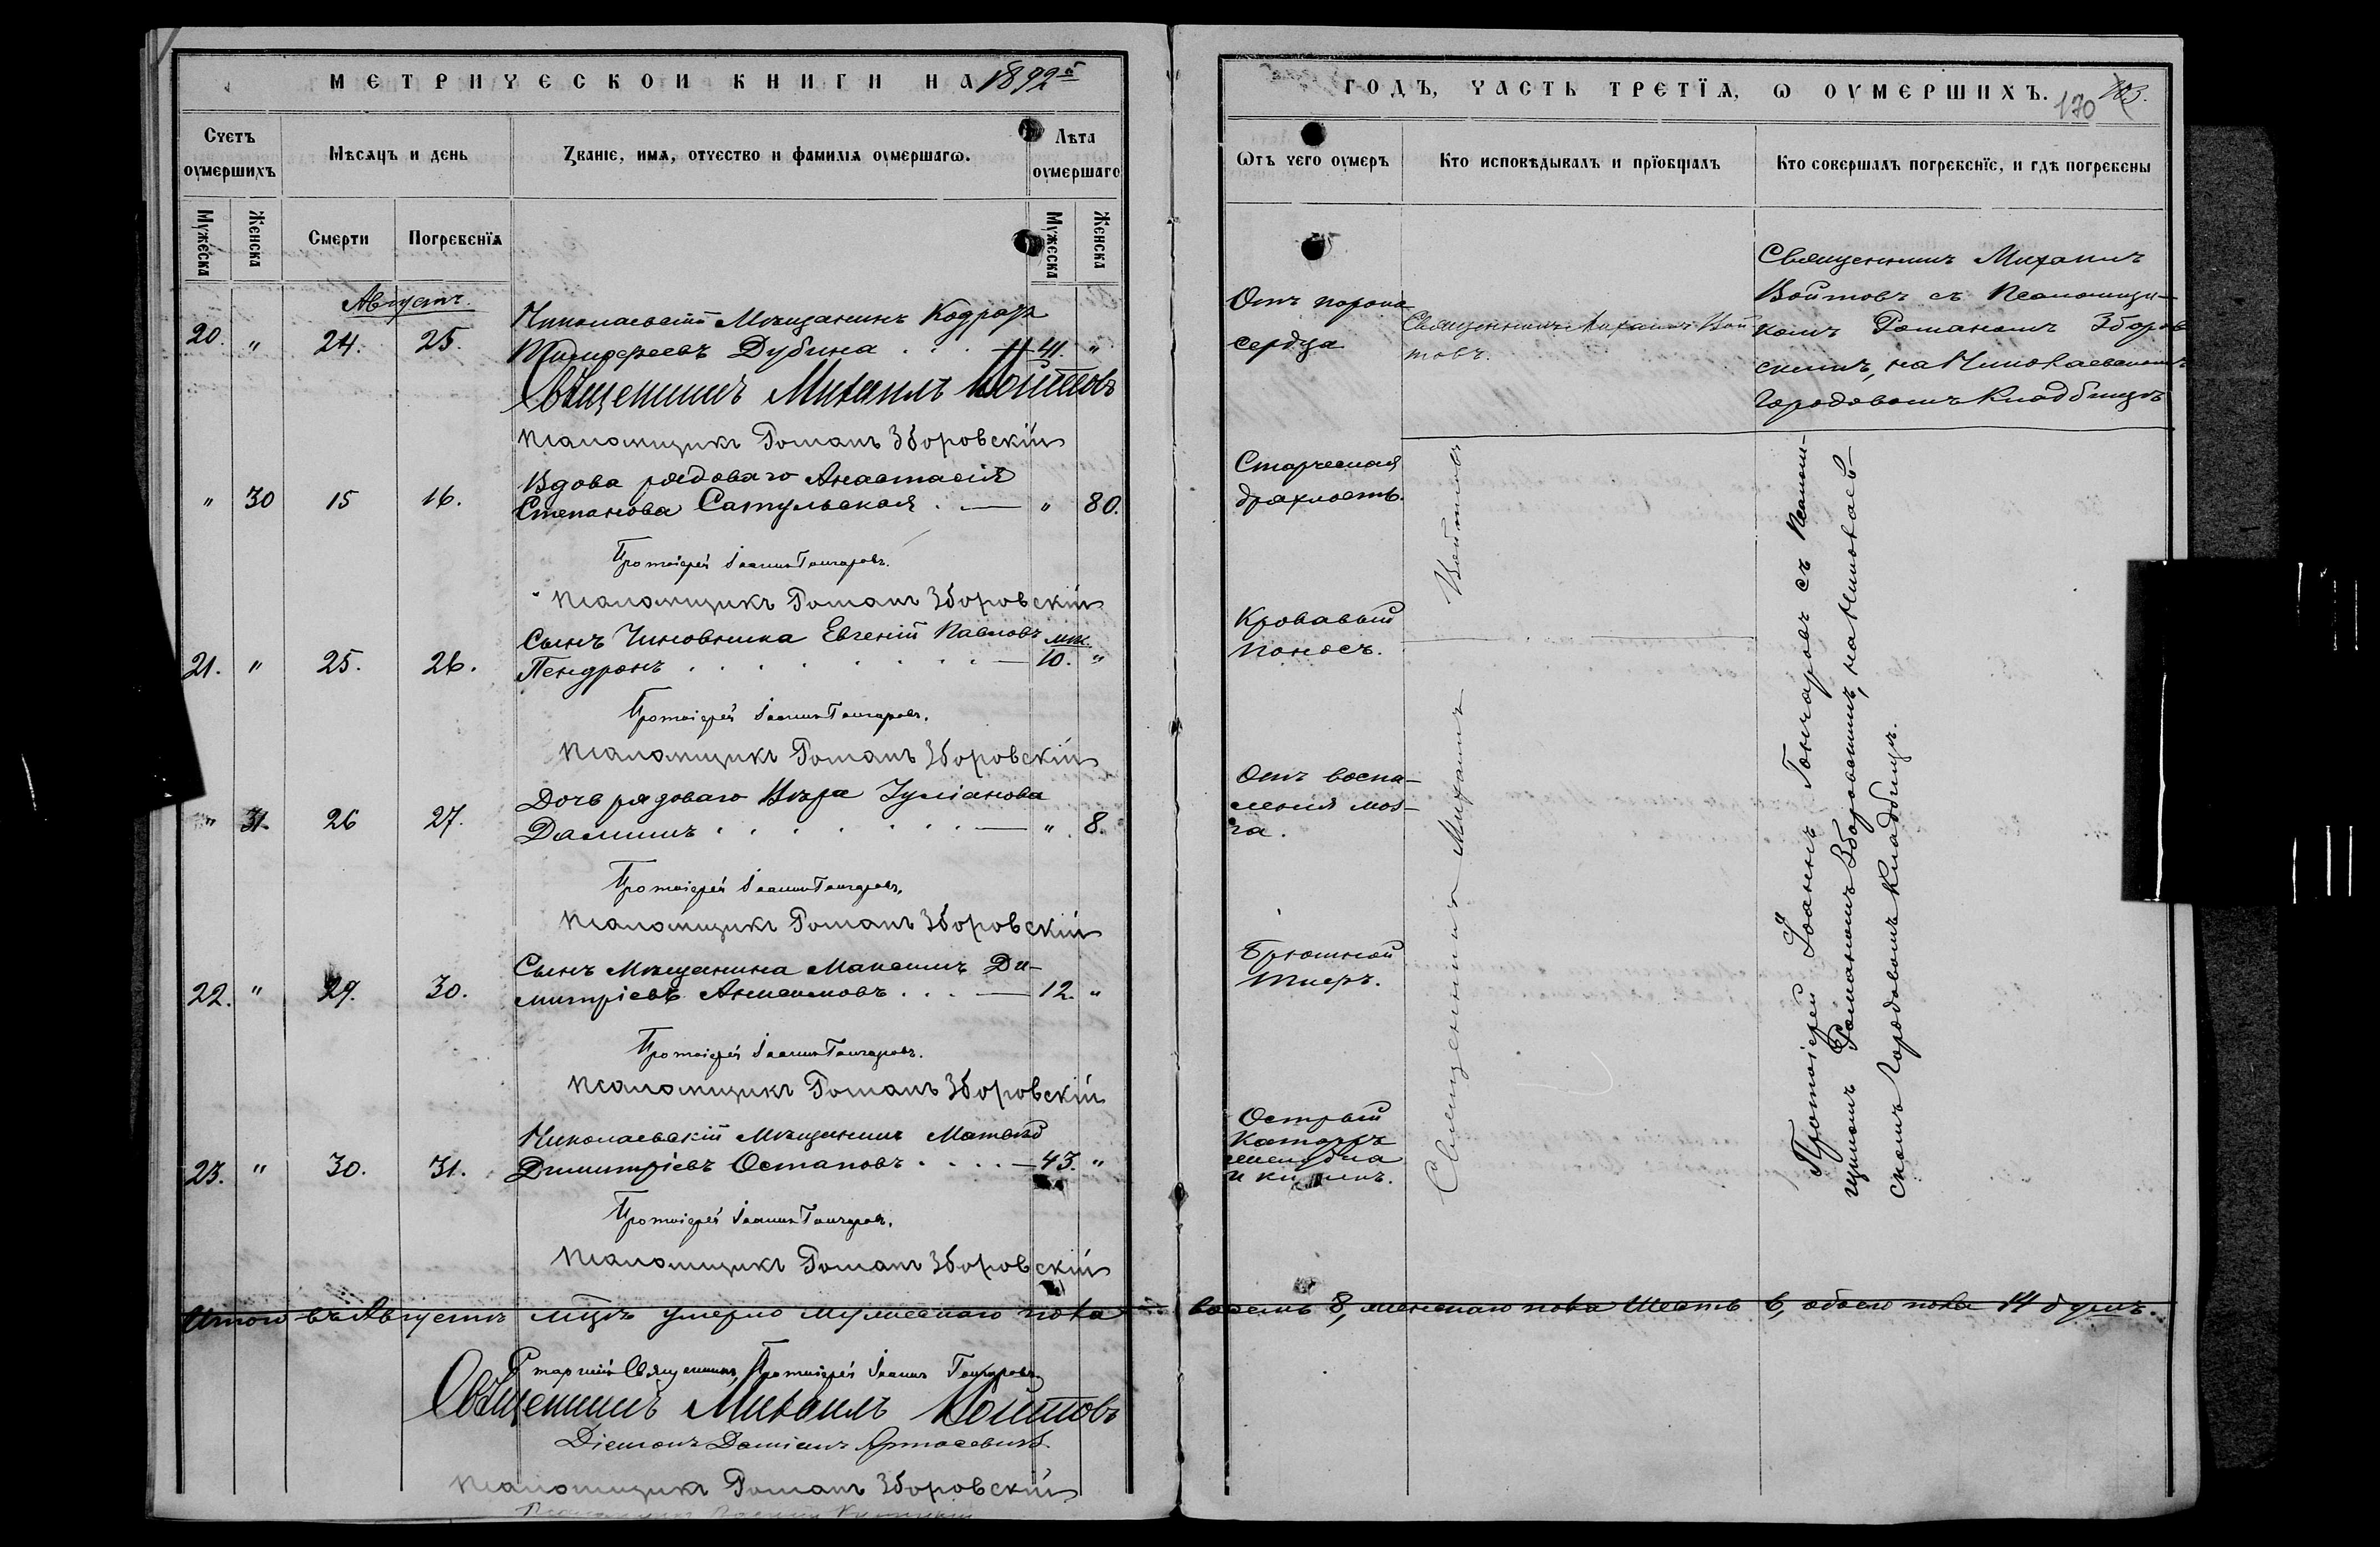 МЕТРИЧЕСКОЙ КНИГИ НА 1892й
Счетъ оумершихъ
Мѣсяцъ и день
Званіе, имя, отчество и фамилія оумершагѡ.
Лѣта оумершаго
Мужеска
Женска
Смерти
Погребенїя
Мужеска
Женска
Августъ.
20. " 24. 25. Николаевскій Мѣщанинъ Кодратъ
Тимофеевъ Дубина . . . 41. "
Священникъ Михаилъ Войтовъ
Псаломщикъ Романъ Зборовскій
" 30 15 16. Вдова рядоваго Анастасія
Степанова Сатульская . — " 80.
Протоіерей Іоаннъ Гончаровъ.
Псаломщикъ Романъ Зборовскій
21. " 25. 26. Сынъ Чиновника Евгеній Павловъ мѣс.
Пендронъ . . . . . . . — 10. "
Протоіерей Іоаннъ Гончаровъ.
Псаломщикъ Романъ Зборовскій
" 31. 26 27. Дочь рядоваго Вѣра Іуліанова
. . . . . . . — " 8.
Протоіерей Іоаннъ Гончаровъ.
Псаломщикъ Романъ Зборовскій
22. " 29. 30. Сынъ Мѣщанина Максимъ Ди-
митріевъ . . . — 12. "
Протоіерей Іоаннъ Гончаровъ.
Псаломщикъ Романъ Зборовскій
23. " 30. 31. Николаевскій Мѣщанинъ Матвѣй
Димитріевъ Остаповъ . . . . — 43. "
Протоіерей Іоаннъ Гончаровъ.
Псаломщикъ Романъ Зборовскій
Итого въ Августѣ мцѣ умерло мужескаго пола
Старшій Священникъ, Протоіерей Іоаннъ Гончаровъ
Священникъ Михаилъ Войтовъ
Діаконъ Даміанъ
Псаломщикъ Романъ Зборовскій
ГОДЪ, ЧАСТЬ ТРЕТЇЯ, Ѡ ОУМЕРШИХЪ.
170
Ѿтъ чего оумеръ
Кто исповѣдывалъ и прїобщалъ
Кто совершалъ погребенїе, и гдѣ погребены
Отъ порока
сердца
Священникъ Михаилъ Вой
товъ.
Священникъ Михаилъ
Войтовъ съ Псаломщи-
комъ Романомъ Зборов
скимъ, на Николаевскомъ
Городовомъ Кладбищѣ
Старческая
дряхлость.
Кровавый
поносъ.
Отъ воспа-
ленія моз-
га.
Брюшной
Тифъ.
Острый
Катарръ
желудка
и кишекъ.
Священникъ Михаилъ Войтовъ
Протоіерей Іоаннъ Гончаровъ съ Псалом-
щикомъ Романомъ Зборовскимъ, на Николаев-
скомъ Городовомъ Кладбищѣ.
восемь 8, женскаго пола Шесть 6, обоего пола 14 душъ.